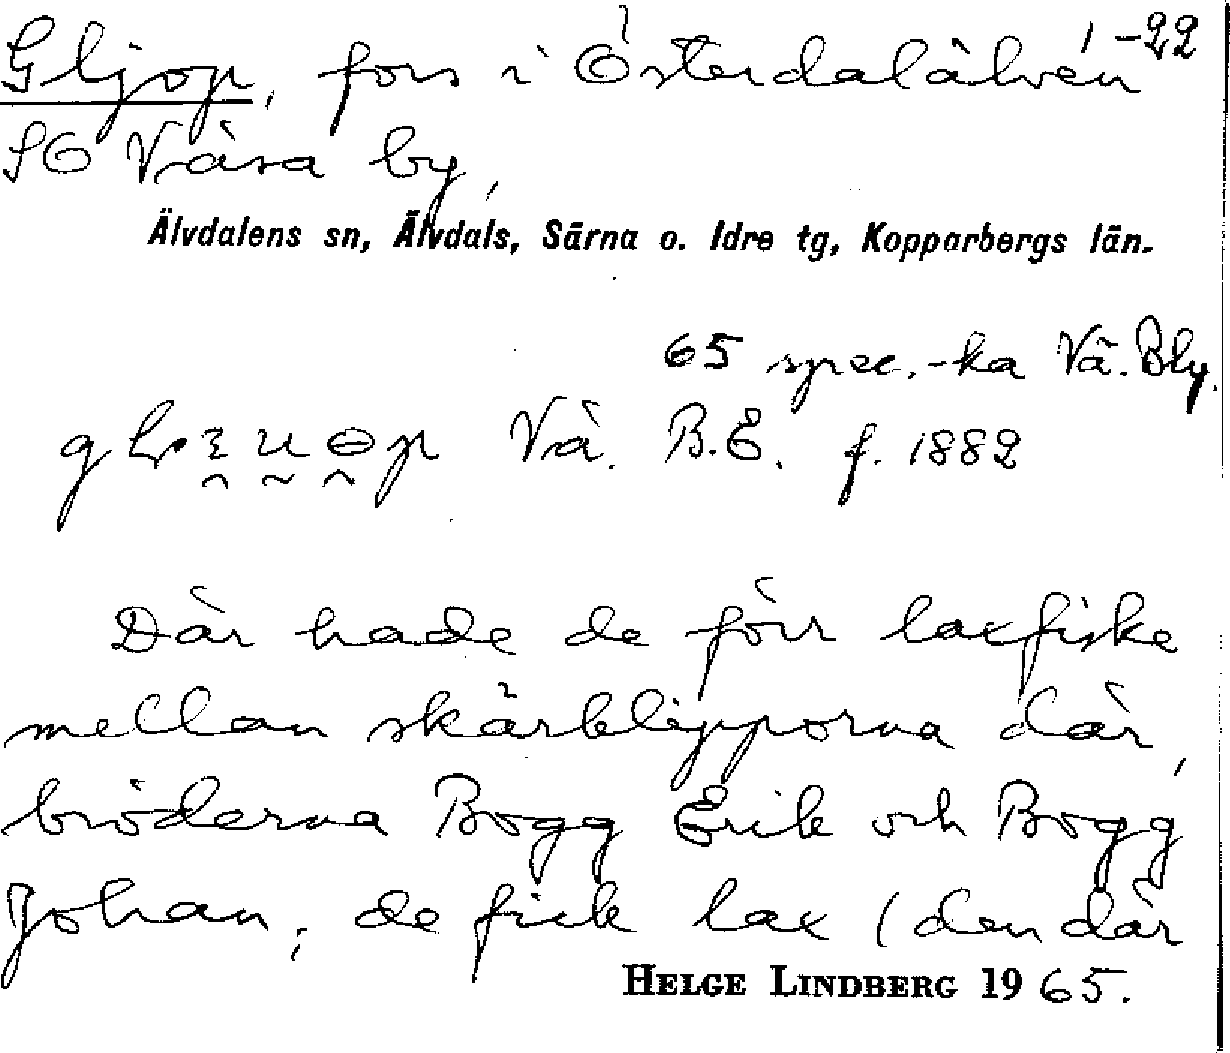 Gljop, fors i Österdalälven -22
SO Väsa by,
Älvdalens sn, Älvdals, Särna o. Idre tg, Kopparbergs län.
65 spec.-ka Vä. Bly.
Vä. B.E. f. 1882
Där hade de förr laxfiske
mellan skärklipporna där,
bröderna Bogg Erik och Bogg
Johan, de fick lax (den där
HELGE LINDBERG 1965.